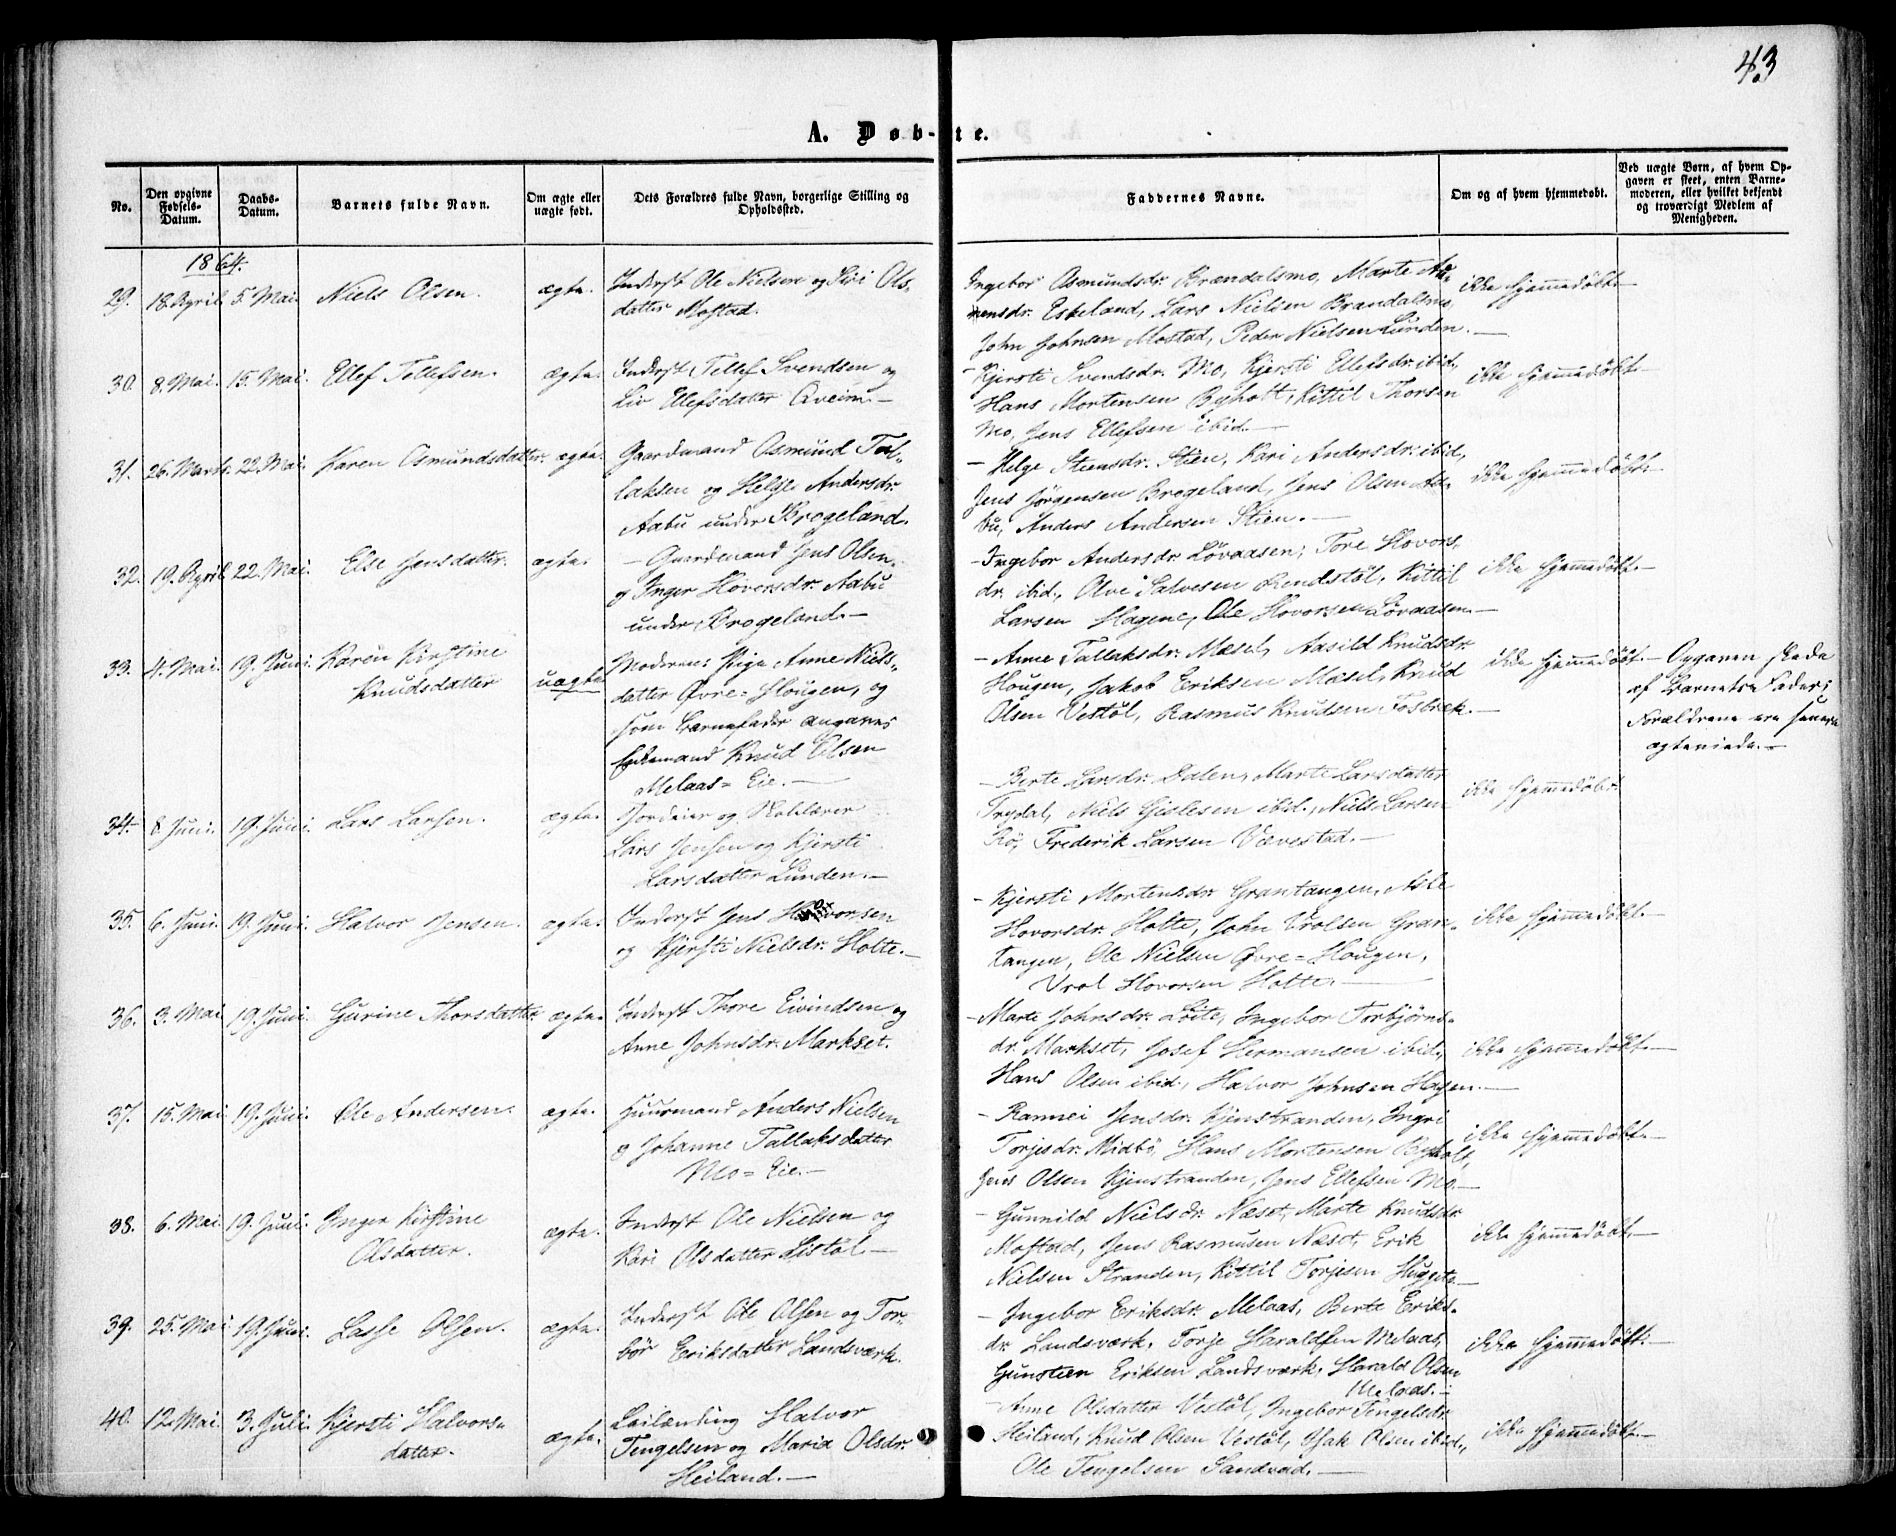 43
A. Døb-te.
No.
Den opgivne Fødsels-Datum.
Daabs-Datum.
Barnets fulde Navn.
Om ægte eller uægte født.
Dets Forældres fulde Navn, borgerlige Stilling og Opholdssted.
Faddernes Navne.
Om og af hvem hjemmedøbt.
Ved uægte Børn, af hvem Opgaven er skeet, enten Barnemoderen, eller hvilket bekjendt og troværdigt Medlem af Menigheden.
1864.
29. 18. April 5. Mai. Niels Olsen. ægte. Inderst Ole Nielsen og Siri Ols,
datter Mostad.
Ingebor Osmundsdr. Brændalsmo, Marte
Eskeland, Lars Nielsen Brandalsmo,
John Johnsen Mostad, Peder Nielsen Lunden.—
ikke hjemmedøbt.—
30. 8. Mai. 15. Mai. Ellef Tellefsen. ægte. Inderst Tellef Svendsen og
Liv Ellefsdatter Qveim.—
- Kjersti Svendsdr. Mo, Kjersti Ellefsdr. ibid,
Hans Mortensen Byholt, Kittil Thorsen
Mo, Jens Ellefsen ibid.—
ikke hjemmedøbt.—
31. 26. Marts. 22. Mai. Karen Osmundsdatter. ægte. Gaardmand Osmund Tal-
laksen og Helje Andersdr.
Aabu under Brogeland.
- Helge Steensdr. Stien, Kari Andersdr. ibid,
Jens Jørgensen Brogeland, Jens Olsen Aa-
bu, Anders Andersen Stien.—
ikke hjemmedøbt.—
32. 19. April 22. Mai. Else Jensdatter. ægte. - Gaardmand Jens Olsen.
og Inger Hovorsdr. Aabu
under Brogeland.—
- Ingebor Andersdr. Løvaasen, Tore Hovors,
dr. ibid., Olve Salvesen Rendstøl, Kittil
Larsen Hagene, Ole Hovorsen Løvaasen.—
ikke hjemmedøbt.—
33. 4. Mai. 19. Juni. Karen Kirstine
Knudsdatter
uægte Moderen: Pige Anne Niels,
datter Øvre=Hougen, og
som Barnefader angaves
Enkemand Knud Olsen
Melaas=Eie.—
- Anne Tallaksdr. Mæsel, Aasild Knudsdr.
Hougen, Jakob Eriksen Mæsel, Knud
Olsen Vestøl, Rasmus Knudsen Fosbæk.—
ikke hjemmedøbt.— Opgaven skede
af Barnets Fader;
Forældrene ere senere
ægteviede.—
34. 8 Juni. 19. Juni. Lars Larsen. ægte. Jordeier og Skolelærer
Lars Jensen og Kjersti
Larsdatter Lunden.—
- Berte Larsdr. Dalen, Marte Larsdatter
Trydal, Niels Gislesen ibid., Niels Larsen
Rø, Frederik Larsen Vævestad.—
ikke hjemmedøbt.
35. 6. Juni. 19. Juni. Halvor Jensen. ægte. Inderst Jens Hovorsen
og Kjersti Nielsdr. Holte.—
- Kjersti Mortensdr. Grantangen, Asle
Hovorsdr. Holte, John Vrolsen Gran-
tangen, Ole Nielsen Øvre=Hougen,
Vrol Hovorsen Holte.—
ikke hjemmedøbt.—
36. 3. Mai 19. Juni. Gurine Thorsdatter. ægte. Inderst Thore Eivindsen og
Anne Johnsdr. Markset.
- Marte Johnsdr. Løite, Ingebor Torbjørns-
dr. Markset, Josef Hermansen ibid.,
Hans Olsen ibid., Halvor Johnsen Hagen.—
ikke hjemmedøbt.—
37. 15. Mai 19. Juni. Ole Andersen. ægte. Huusmand Anders Nielsen
og Johanne Tallaksdatter
Mo=Eie.—
- Rannei Jensdr. Kjenstranden, Ingri
Torjusdr. Midbø, Hans Mortensen Byholt,
Jens Olsen Kjenstranden, Jens Ellefsen Mo.—
ikke hjemmedøbt.—
38. 6. Mai 19. Juni. Inger Kirstine
Olsdatter.
ægte. Inderst Ole Nielsen og
Kari Olsdatter Listøl.—
- Gunnild Nielsdr. Næset, Marte Knudsdr.
Mostad, Jens Rasmusen Næset, Erik
Nielsen Stranden, Kittil Torjesen
ikke hjemmedøbt.—
39. 25. Mai 19. Juni. Lasse Olsen. ægte. Inderst Ole Olsen og Tor-
bør Eriksdatter Landsværk.
- Ingebor Eriksdr. Melaas, Berte Eriks-
dr. Landsværk, Torje Haraldsen Melaas,
Gunsteen Eriksen Landsværk, Harald Olsen
Melaas.—
ikke hjemmedøbt.—
40. 12. Mai. 3. Juli. Kjersti Halvors-
datter.
ægte. Leilænding Halvor
Tengelsen og Maria Olsdr.
Heiland.—
- Anne Olsdatter Vestøl, Ingebor Tengelsdr.
Heiland, Knud Olsen Vestøl, Isak Olsen ibid.,
Ole Tengelsen Sandvad.—
ikke hjemmedøbt.—